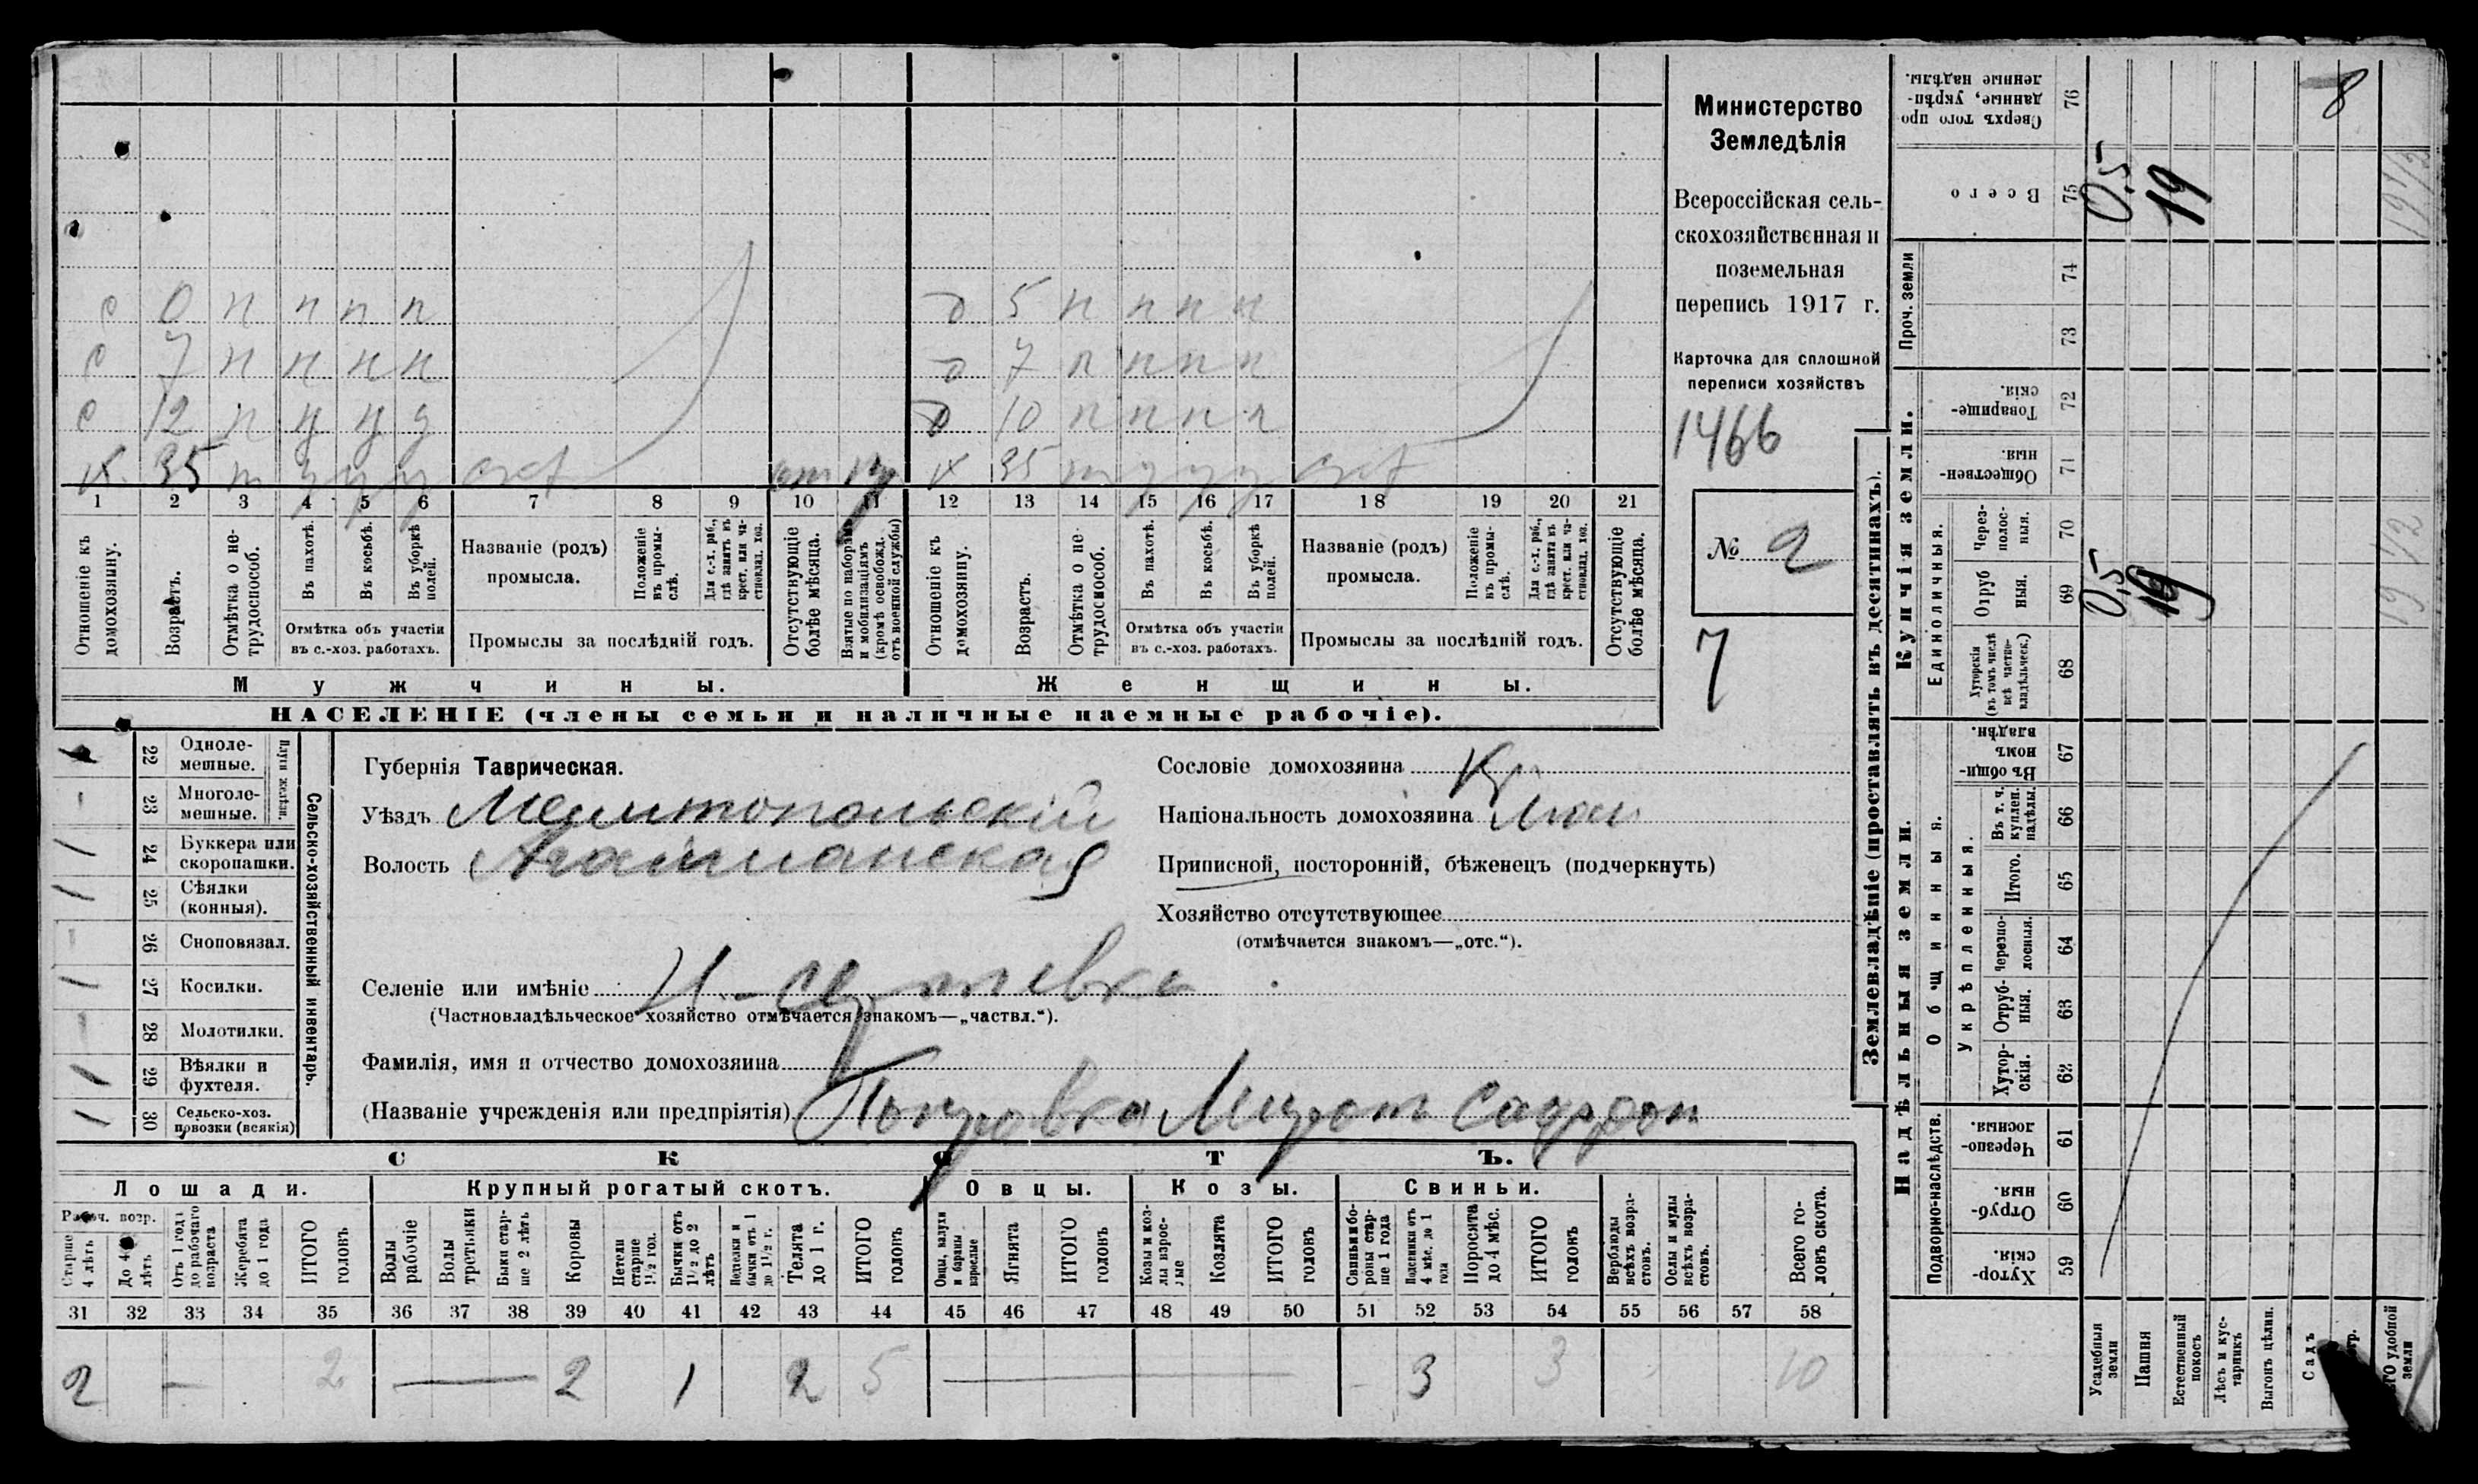 8
с 0 н н н н д 5 н н н н
с 7 н н н н д 7 н н н н
с 12 н ч ч ч д 10 н н н н
х 35 х 35
1 2 3 4 5 6 7 8 9 10 11 12 13 14 15 16 17 18 19 20 21
Отношеніе къ домохозяину.
Возрастъ.
Отмѣтка о нетрудоспособ.
Въ пахотѣ.
Въ косьбѣ.
Въ уборкѣ полей.
Отмѣтка объ участіи въ с.-хоз. работахъ.
Названіе (родъ) промысла.
Положеніе въ промыслѣ.
Для с.-х. раб., гдѣ занятъ въ крест. или частновлад. хоз.
Промыслы за послѣдній годъ.
Отсутствующіе болѣе мѣсяца.
Взятые по наборамъ и мобилизаціямъ (кромѣ освобожд. отъ военной службы)
Отношеніе къ домохозяину.
Возрастъ.
Отмѣтка о нетрудоспособ.
Въ пахотѣ.
Въ косьбѣ.
Въ уборкѣ полей.
Отмѣтка объ участіи въ с.-хоз. работахъ.
Названіе (родъ) промысла.
Положеніе въ промыслѣ.
Для с.-х. раб., гдѣ занята въ крест. или частновлад. хоз.
Промыслы за послѣдній годъ.
Отсутствующіе болѣе мѣсяца.
Мужчины. Женщины.
НАСЕЛЕНІЕ (члены семьи и наличные наемные рабочіе).
Министерство
Земледѣлія
Всероссійская сель-
скохозяйственная и
поземельная
перепись 1917 г.
Карточка для сплошной
переписи хозяйствъ
1466
№ 2
7
Плуги желѣзн.
22 Одноле-
мешные.
23 Многоле-
мешные.
24 Буккера или
скоропашки.
25 Сѣялки
(конныя).
26 Сноповязал.
27 Косилки.
28 Молотилки.
29 Вѣялки и
фухтеля.
30 Сельско-хоз.
повозки (всякія)
Сельско-хозяйственный инвентарь.
Губернія Таврическая.
Уѣздъ Мелитопольскій
Волость Агайманская
Селеніе или имѣніе
(Частновладѣльческое хозяйство отмѣчается знакомъ—„частвл.“).
Фамилія, имя и отчество домохозяина
(Названіе учрежденія или предпріятія)
Сословіе домохозяина Кр
Національность домохозяина
Приписной, посторонній, бѣженецъ (подчеркнуть)
Хозяйство отсутствующее
(отмѣчается знакомъ—„отс.“).
СКОТЪ.
Лошади. Крупный рогатый скотъ. Овцы. Козы. Свиньи.
Рабоч. возр.
Старше 4 лѣтъ
До 4 лѣтъ
Отъ 1 года до рабочаго возраста
Жеребята до 1 года
ИТОГО головъ
Волы рабочіе
Волы третьяки
Быки старше 2 лѣтъ
Коровы
Нетели старше 1½ год.
Бычки отъ 1½ до 2 лѣтъ
Неделки и бычки отъ 1 до 1½ г.
Телята до 1 г.
ИТОГО головъ
Овцы, валухи и бараны взрослые
Ягнята
ИТОГО головъ
Козы и козлы взрослые
Козлята
ИТОГО головъ
Свиньи и боровы старше 1 года
Подсвинки отъ 4 мѣс. до 1 года
Поросята до 4 мѣс.
ИТОГО головъ
Верблюды всѣхъ возрастовъ.
Ослы и мулы всѣхъ возрастовъ.
Всего головъ скота.
31 32 33 34 35 36 37 38 39 40 41 42 43 44 45 46 47 48 49 50 51 52 53 54 55 56 57 58
2 — 2 — 2 1 2 5 — - 3 3 10
Землевладѣніе (проставлять въ десятинахъ).
Сверхъ того проданные, укрѣпленные надѣлы. 76
Всего 75 0,5 19 19½
Проч. земли
74
73
Купчія земли.
Товарищескія. 72
Общественныя. 71
Единоличныя.
Черезполосныя. 70
Отрубныя. 69 0,5 19 19½
Хуторскія (въ томъ числѣ всѣ частновладѣльческ.) 68
Надѣльныя земли.
Общинныя.
Въ общинномъ владѣн. 67
Укрѣпленныя.
Въ т. ч. куплен. надѣлы. 66
Итого. 65
Черезполосныя. 64
Отрубныя. 63
Хуторскія. 62
Подворно-наслѣдств.
Черезполосныя. 61
Отрубныя. 60
Хуторскія. 59
Усадебныя земли
Пашня
Естественный покосъ
Лѣсъ и кустарникъ
Выгонъ цѣлин.
Садъ
удобной земли